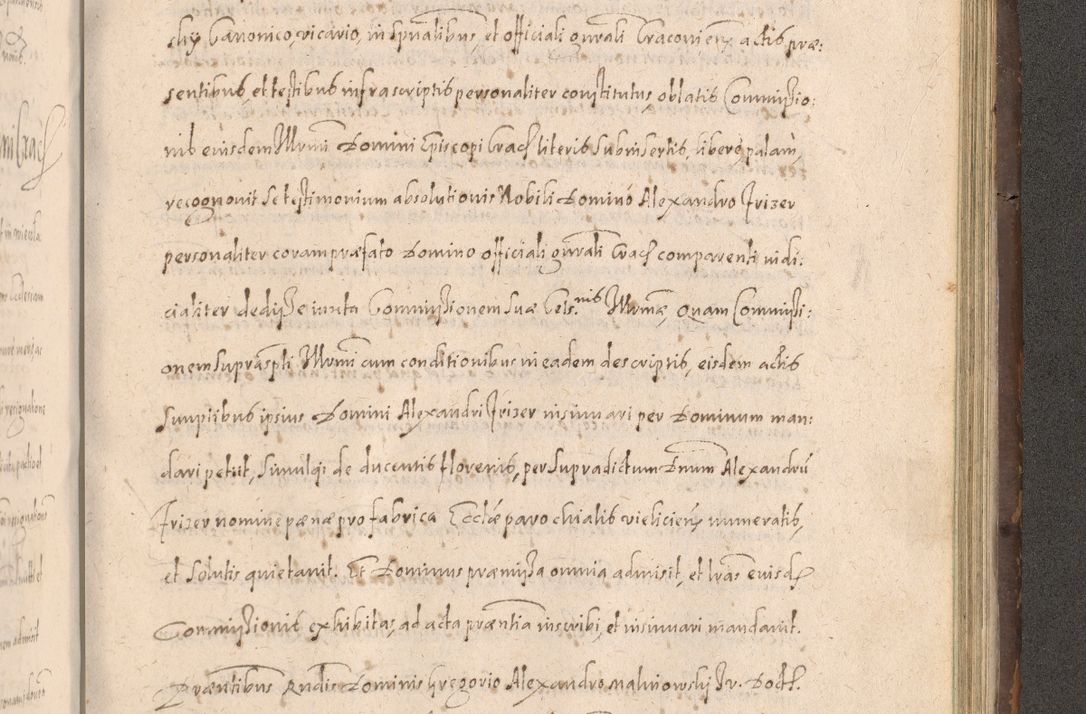 sky Canonico, vicario, in spūalibus, et officiali gnrali Cracovien̄ actis præ:
sentibus, et testibus infrascriptis personaliter constitutus, oblatis Commissio:
nib eiusdem Illrmi Domini Episcopi Crac̄ literis subinsertis, libere, palam,
recognovit se testimonium absolutionis Nobili Domino Alexandro Frizer
personaliter coram præfato Domino officiali gnrali Crac̄ comparenti iudi:
cialiter dedisse iuxta Commissionem suæ Cels.nis Illrmæ, Quam Commissi:
onem supraspti Illrmi cum conditionibus in eadem descriptis, eisdem actis
sumptibus ipsius Domini Alexandri Frizer insinuari per Dominum man:
dari petiit, simulqȝ de ducentis florenis, per supradictum Dnum Alexandrū
Frizer nomine pænæ pro fabrica Eccl̄æ parochialis vielicien̄ numeratis,
et solutis quietavit. Et Dominus præmissa omnia admisit, et lr̄as eiusd̄
Commissionis exhibitas, ad acta præntia inscribi, et insinuari mandavit.
Præntibus Rndis Dominis Gregorio Alexandro Malinowski Jv. Doct̄.